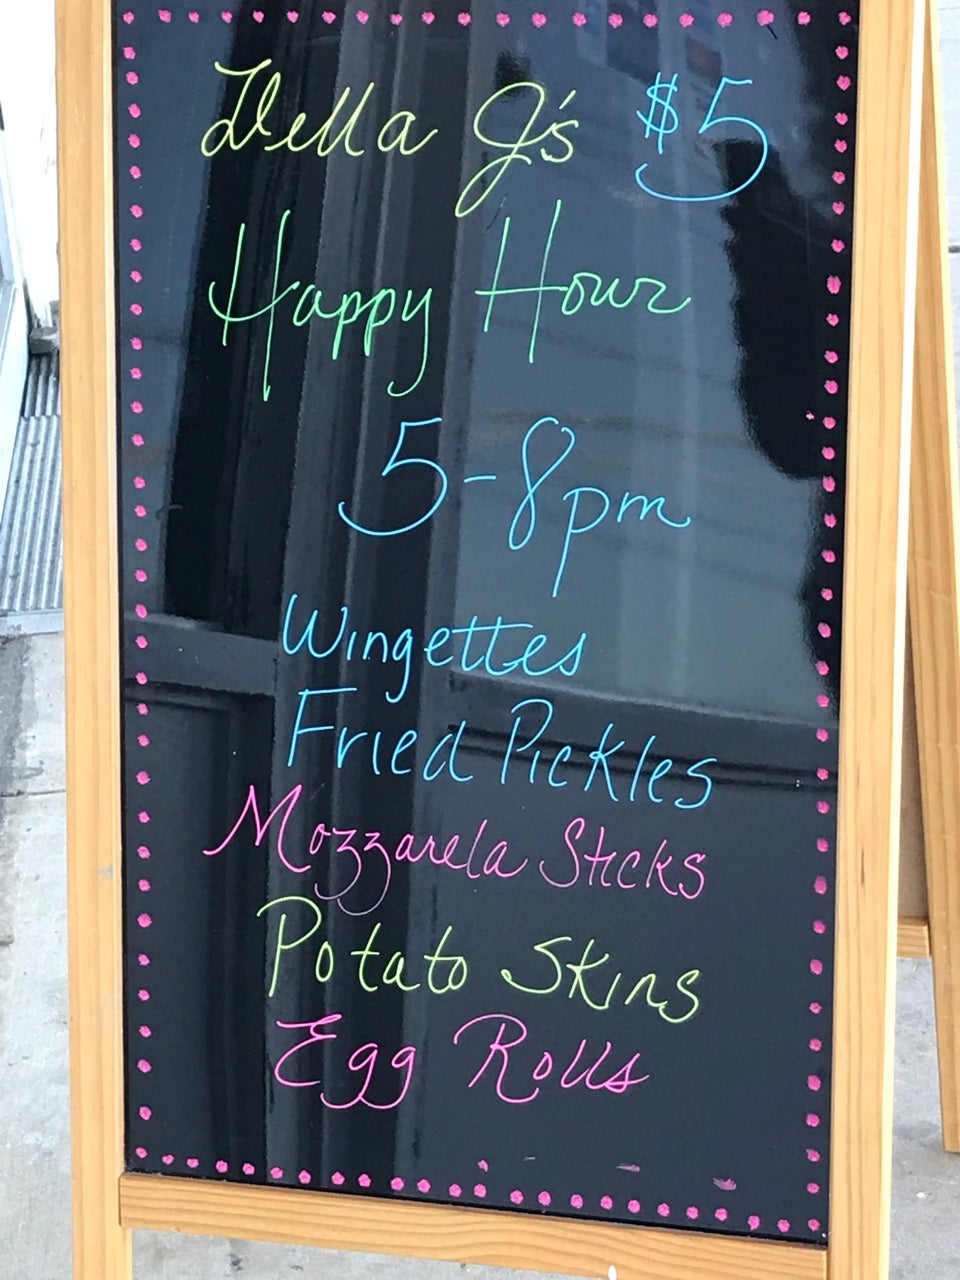 Della G's $5
Happy Hour
5-8pm
Wingettes
Fried Pickles
Mozzarela Sticks
Potato Skins
Egg Rolls